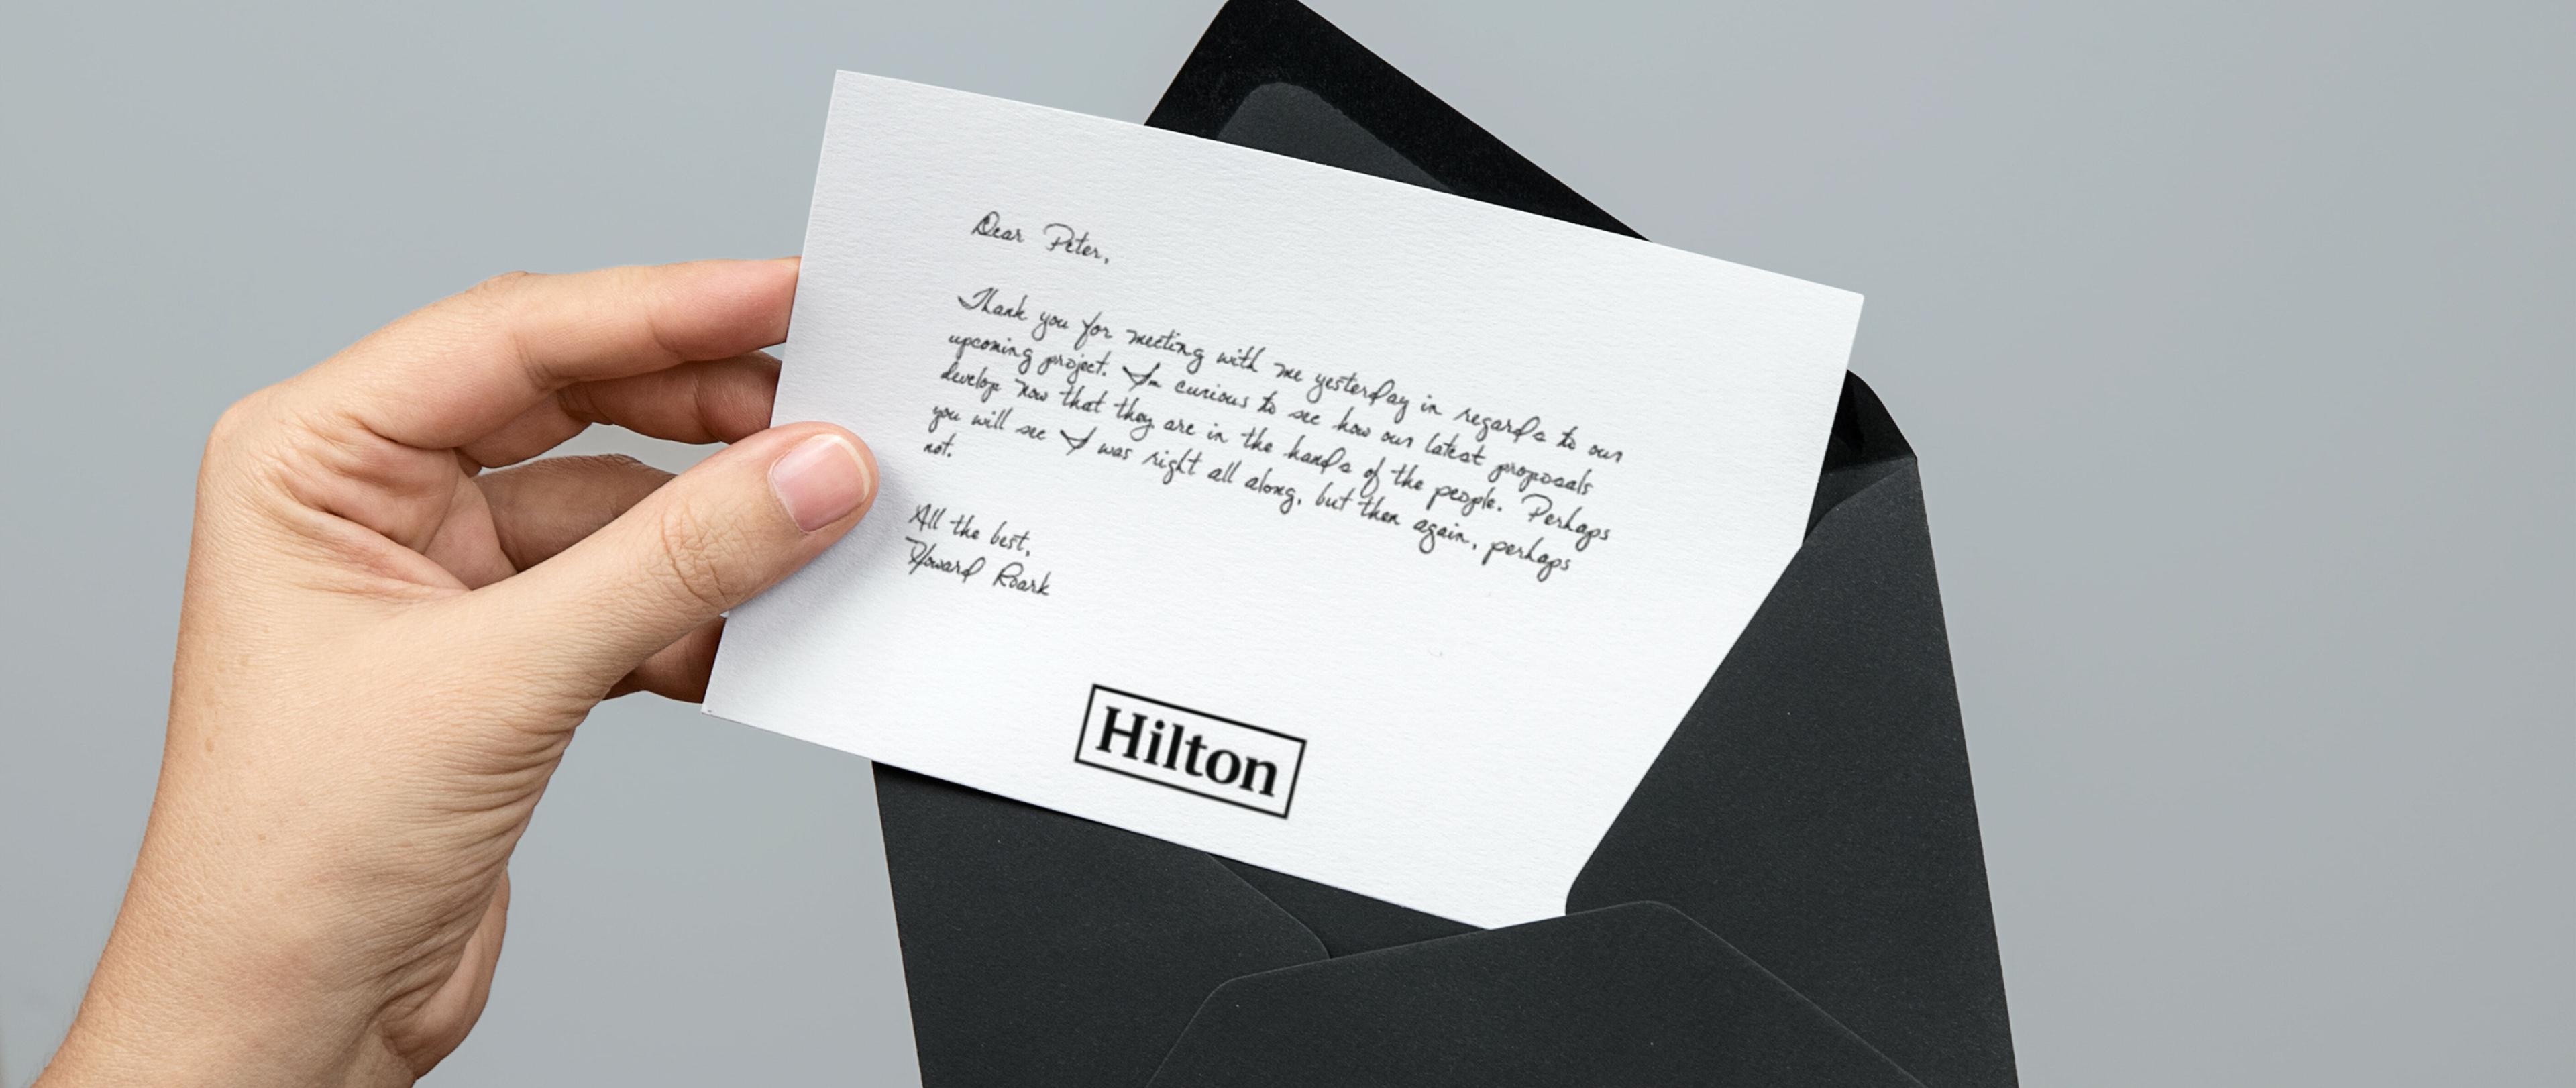 Dear Peter,
Thank you for meeting with me yesterday in regards to our
upcoming project. I'm curious to see how our latest proposals
develop now that they are in the hands of the people. Perhaps
you will see I was right all along, but then again, perhaps
not.
All the best,
Howard Roark
Hilton